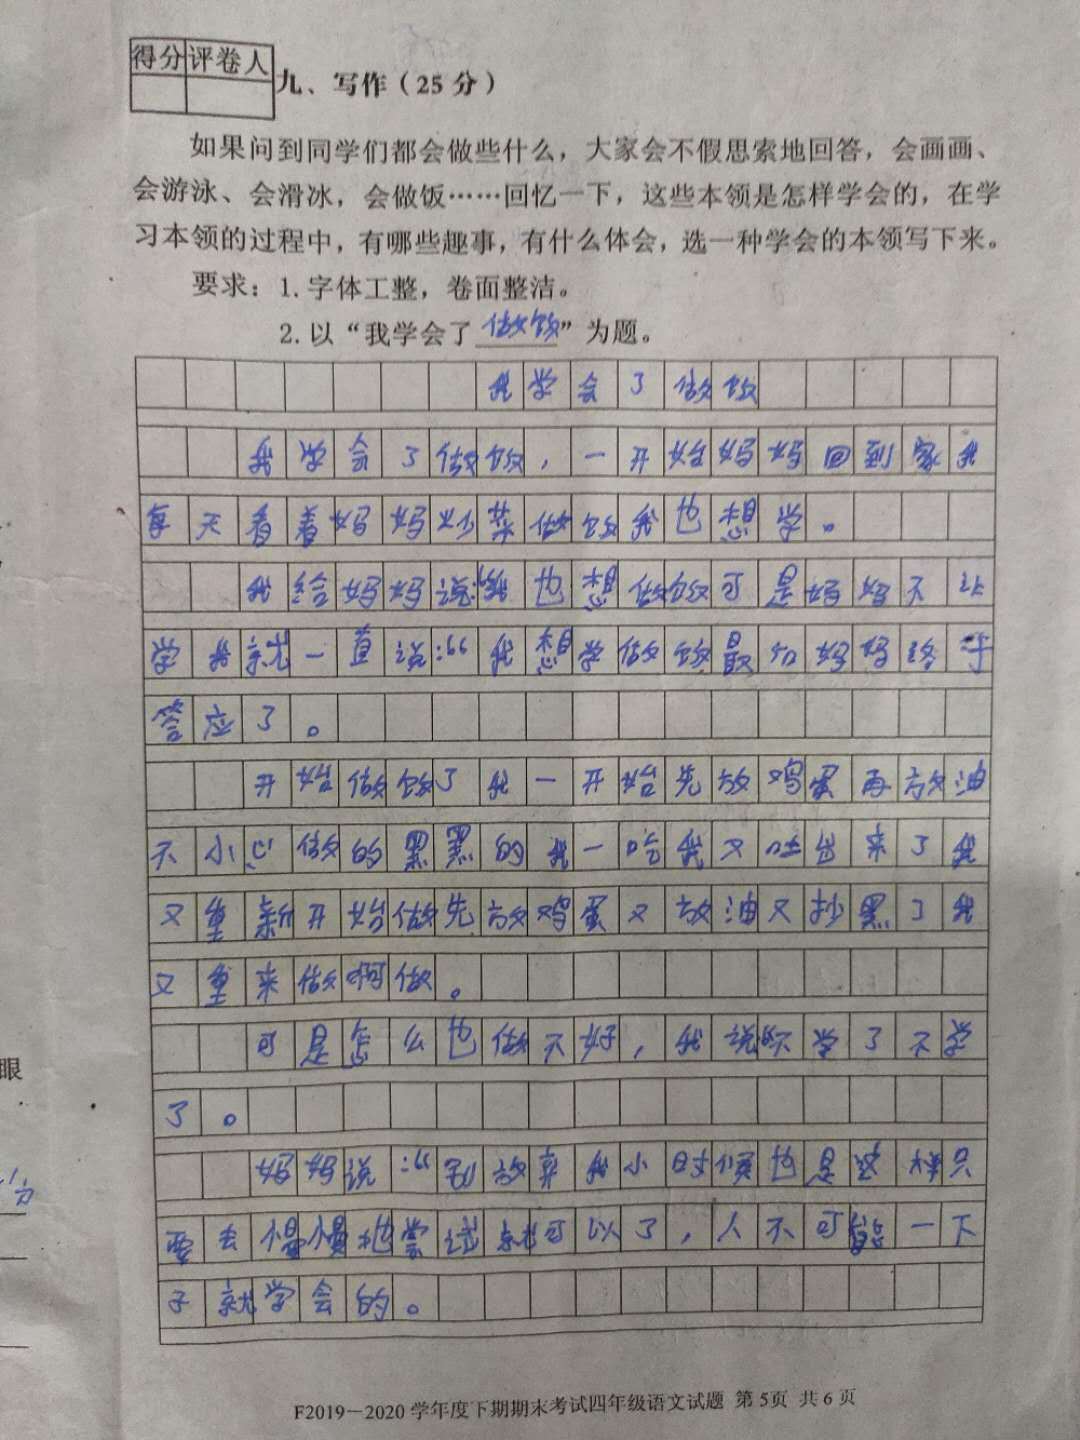 得分 评卷人
九、写作（25分）
如果问到同学们都会做些什么，大家会不假思索地回答，会画画、
会游泳、会滑冰，会做饭……回忆一下，这些本领是怎样学会的，在学
习本领的过程中，有哪些趣事，有什么体会，选一种学会的本领写下来。
要求：1.字体工整，卷面整洁。
2.以“我学会了做饭”为题。
我学会了做饭
我学会了做饭，一开始妈妈回到家我
每天看着妈妈炒菜做饭我也想学。
我给妈妈说:“我也想做饭可是妈妈不让
学我就一直说:“我想学做饭最后妈妈终于
答应了。
开始做饭了我一开始先放鸡蛋再放油
不小心做的黑黑的我一吃我又吐出来了我
又重新开始做先放鸡蛋又放油又抄黑了我
又重来做啊做。
可是怎么也做不好，我说不学了不学
了。
妈妈说:“别放弃我小时候也是这样只
要去慢慢地尝试就可以了，人不可能一下
子就学会的。
眼
分
F2019—2020学年度下期期末考试四年级语文试题 第5页 共6页